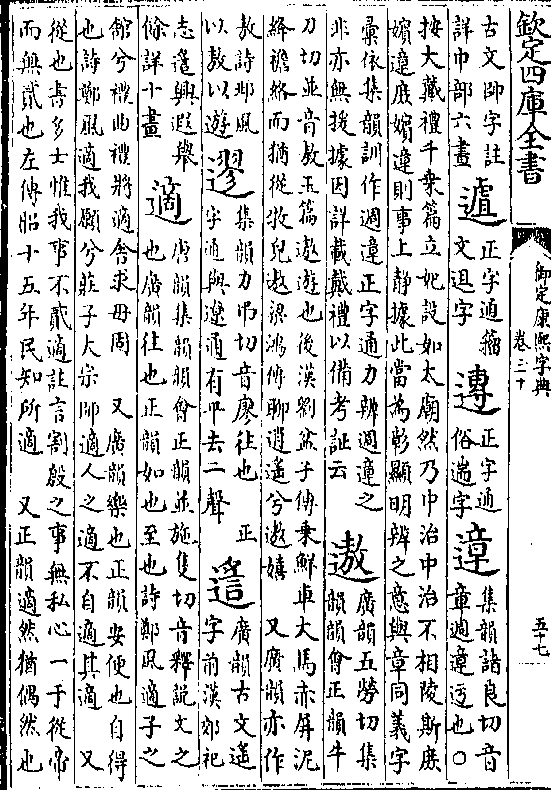 欽定四庫全書
御定康熙字典
卷三十
五十七
古文帥字註詳巾部六畫
遉
正字通籀文迌字
遱
正字通俗遄字
遧
集韻諸良切音章週遧迃也○
按大戴禮千乗篇立妃設如太廟然乃中治中治不相陵斯庻
嬪遧庻嬪遧則事上静據此當為彰顯明辨之意與章同義字
彙依集韻訓作週遧正字通力辨週遧之
非亦無援據因詳載戴禮以備考証云
遨
廣韻五勞切集韻韻會正韻牛
刀切並音敖玉篇遨遊也後漢劉盆子傳乗鮮車大馬赤屏泥
絳襜絡而猶從牧兒遨梁鴻傳聊逍遥兮遨嬉　又廣韻亦作
敖詩邶風以敖以遊
遼
集韻力弔切音廖往也　正字通與遼通有平去二聲
遥
廣韻古文遥字前漢郊祀
志遥興遐舉餘詳十畫
適
唐韻集韻韻會正韻並施隻切音釋説文之
也廣韻往也正韻如也至也詩鄭風適子之
舘兮禮曲禮將適舍求毋固　又廣韻樂也正韻安便也自得
也詩鄭風適我願兮莊子大宗師適人之適不自適其適　又
從也書多士惟我事不貳適註言割殷之事無私心一于從帝
而無貳也左傳昭十五年民知所適　又正韻適然猶偶然也